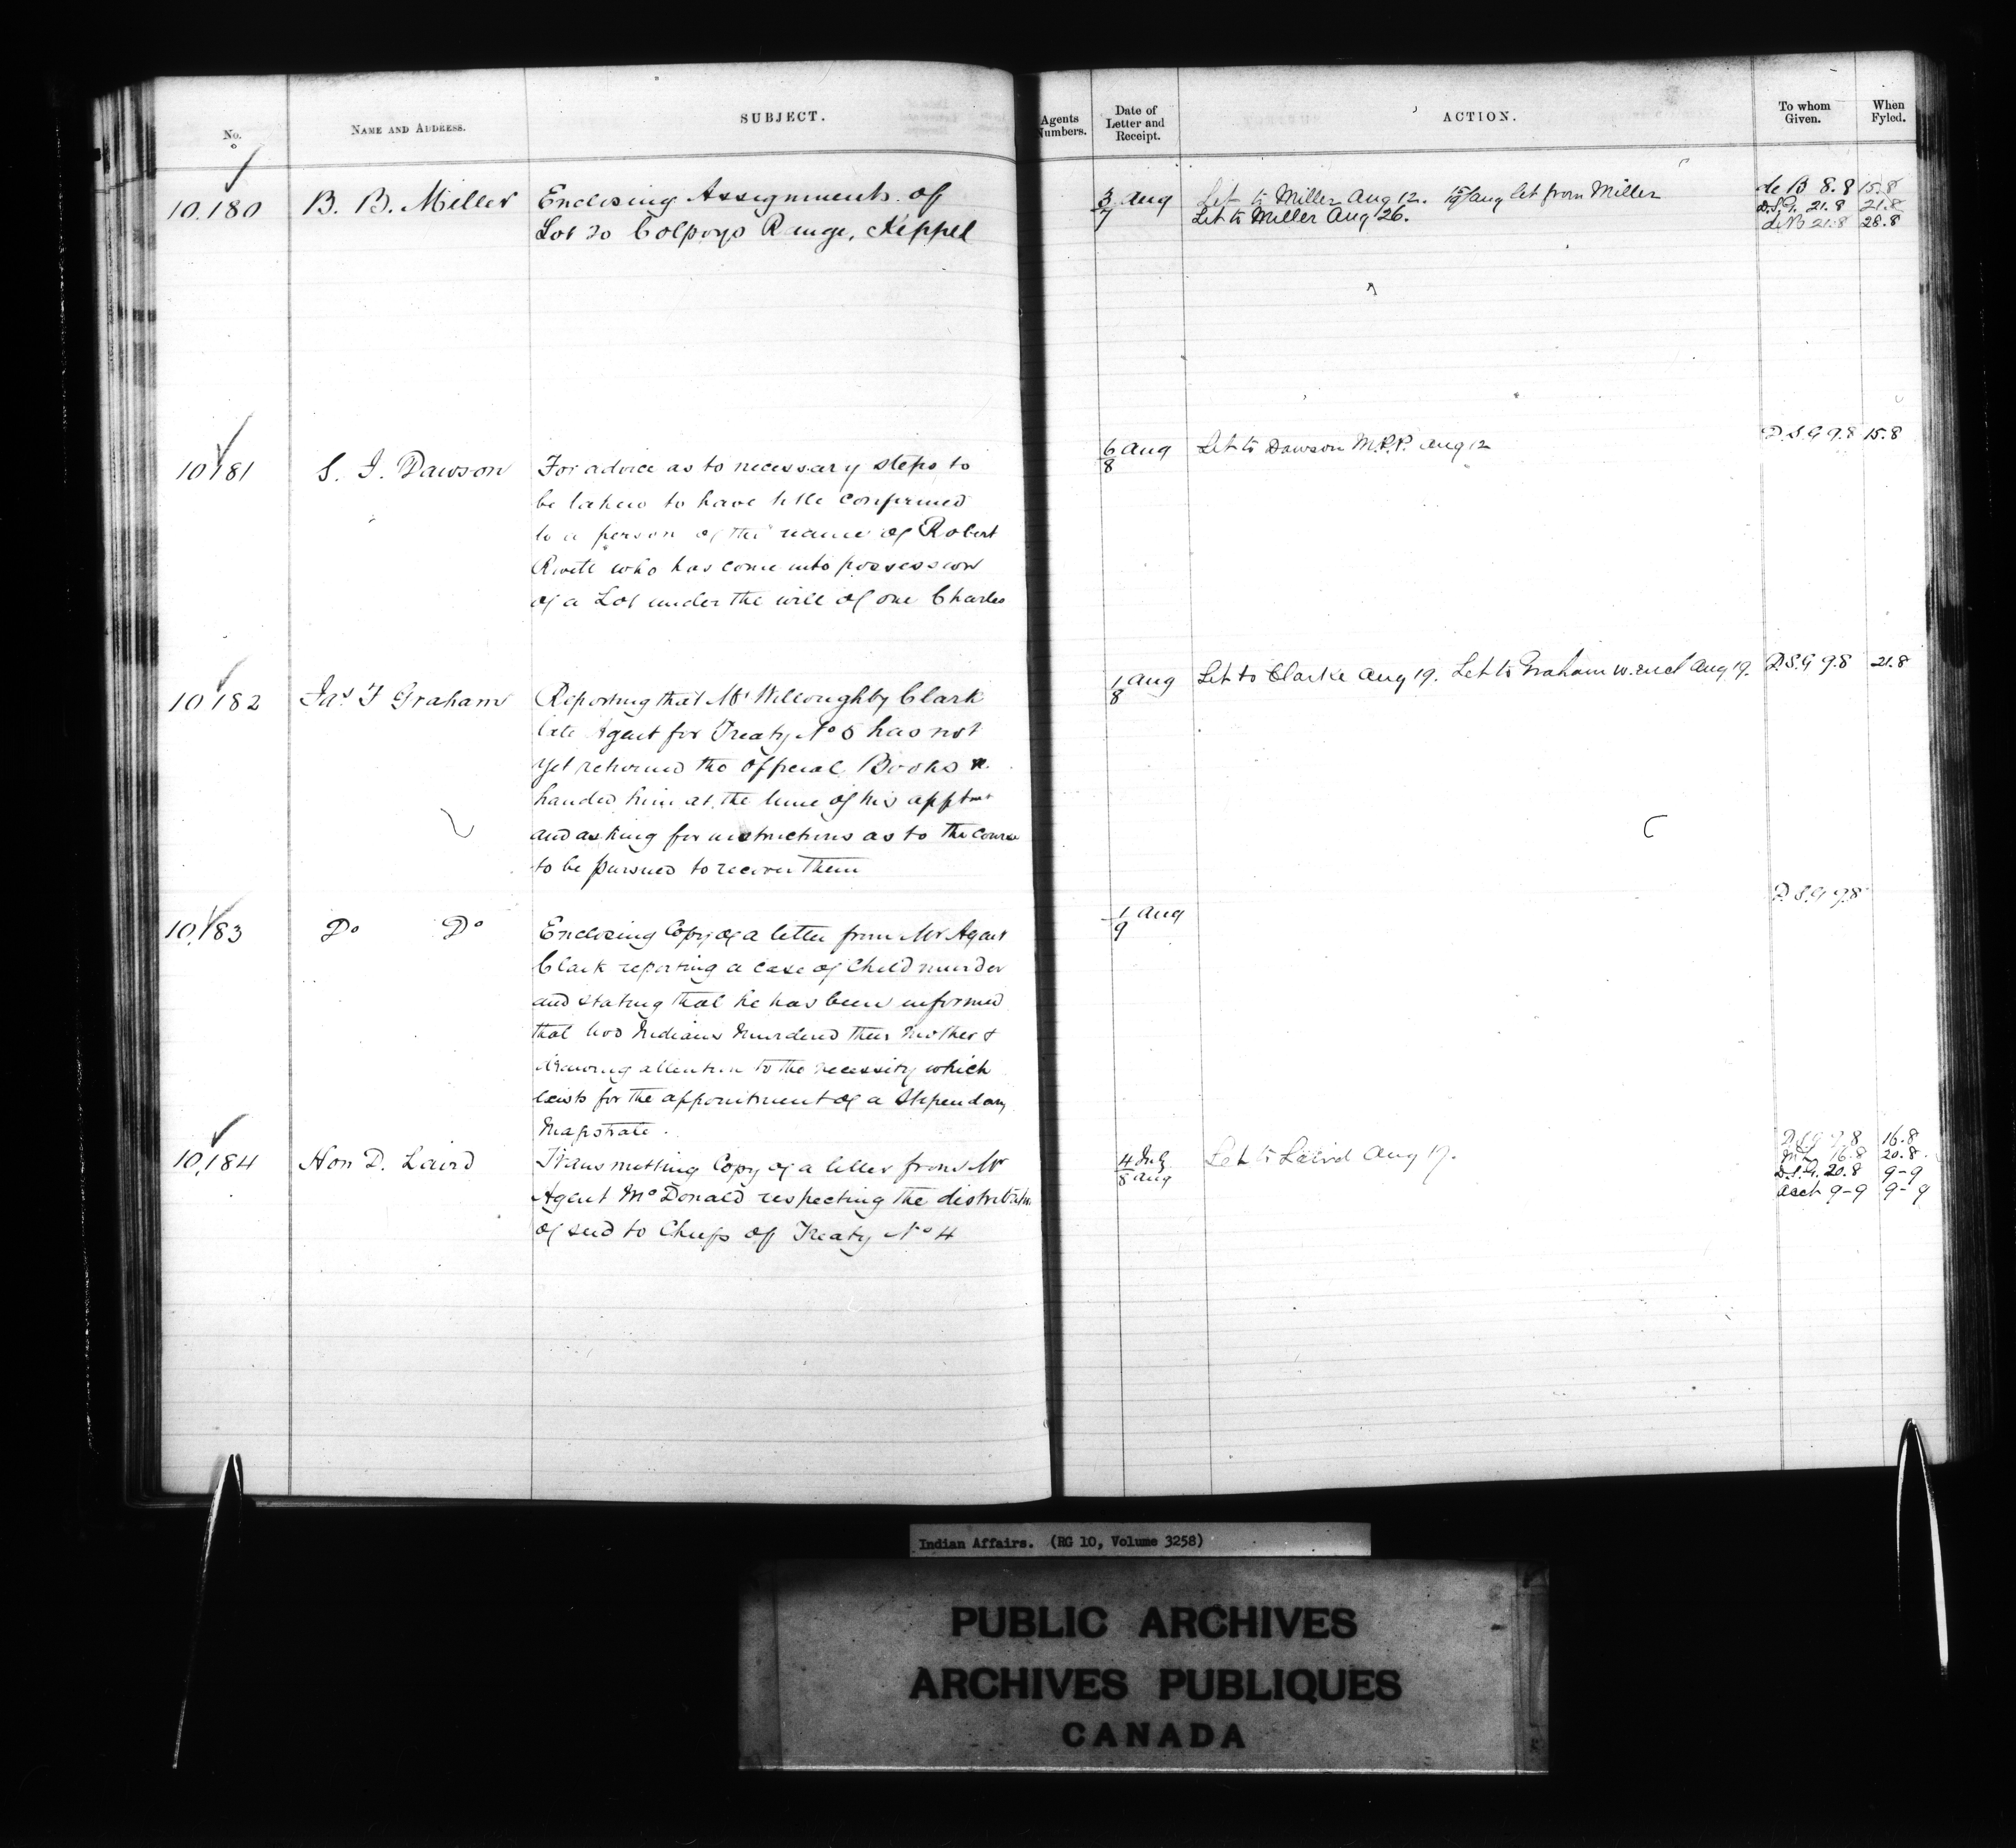 No.
NAME AND ADDRESS.
SUBJECT.
Agents Numbers.
Date of Letter and Receipt.
ACTION.
To whom Given.
When Fyled.
10,180
B. B. Miller
Enclosing Assignments of
Lot 20 Colpoys Range, Keppel
3/7 Aug
Let to Miller Aug 12. 15/19 Aug let from Miller
Let to Miller Aug 26.
de B 8.8 15.8
D.S.G. 21.8 21.8
de B 21.8 28.8
10,181
S. J. Dawson
For advice as to necessary steps to
be taken to have title confirmed
to a person of the name of Robert
who has come into possession
of a Lot under the will of one Charles
6/8 Aug
Let to Dawson M.P.P. Aug 12
D.S.G 9.8 15.8
10,182
Jas. F Graham
Reporting that Mr Willoughby Clark
late Agent for Treaty No 5 has not
yet returned the Official Books
handed him at the time of his apptmt
and asking for instructions as to the course
to be pursued to recover them
1/8 Aug
Let to Clarke Aug 19. Let to Graham w. encl Aug 19.
D.S.G 9.8 21.8
10,183
Do Do
Enclosing Copy of a letter from Mr Agent
Clark reporting a case of Child murder
and stating that he has been informed
that two Indians murdered their mother &
drawing attention to the necessity which
exists for the appointment of a Stipendary
Magistrate.
1/9 Aug
D.S.G 9.8
10,184
Hon D. Laird
Transmitting Copy of a letter from Mr
Agent McDonald respecting the distribution
of seed to Chiefs of Treaty No 4
4 July
8 Aug
Let to Laird Aug 19.
D.S.G 9.8 16.8
16.8 20.8
D.S.G. 20.8 9-9
Acct 9-9 9-9
Indian Affairs. (RG 10, Volume 3258)
PUBLIC ARCHIVES
ARCHIVES PUBLIQUES
CANADA